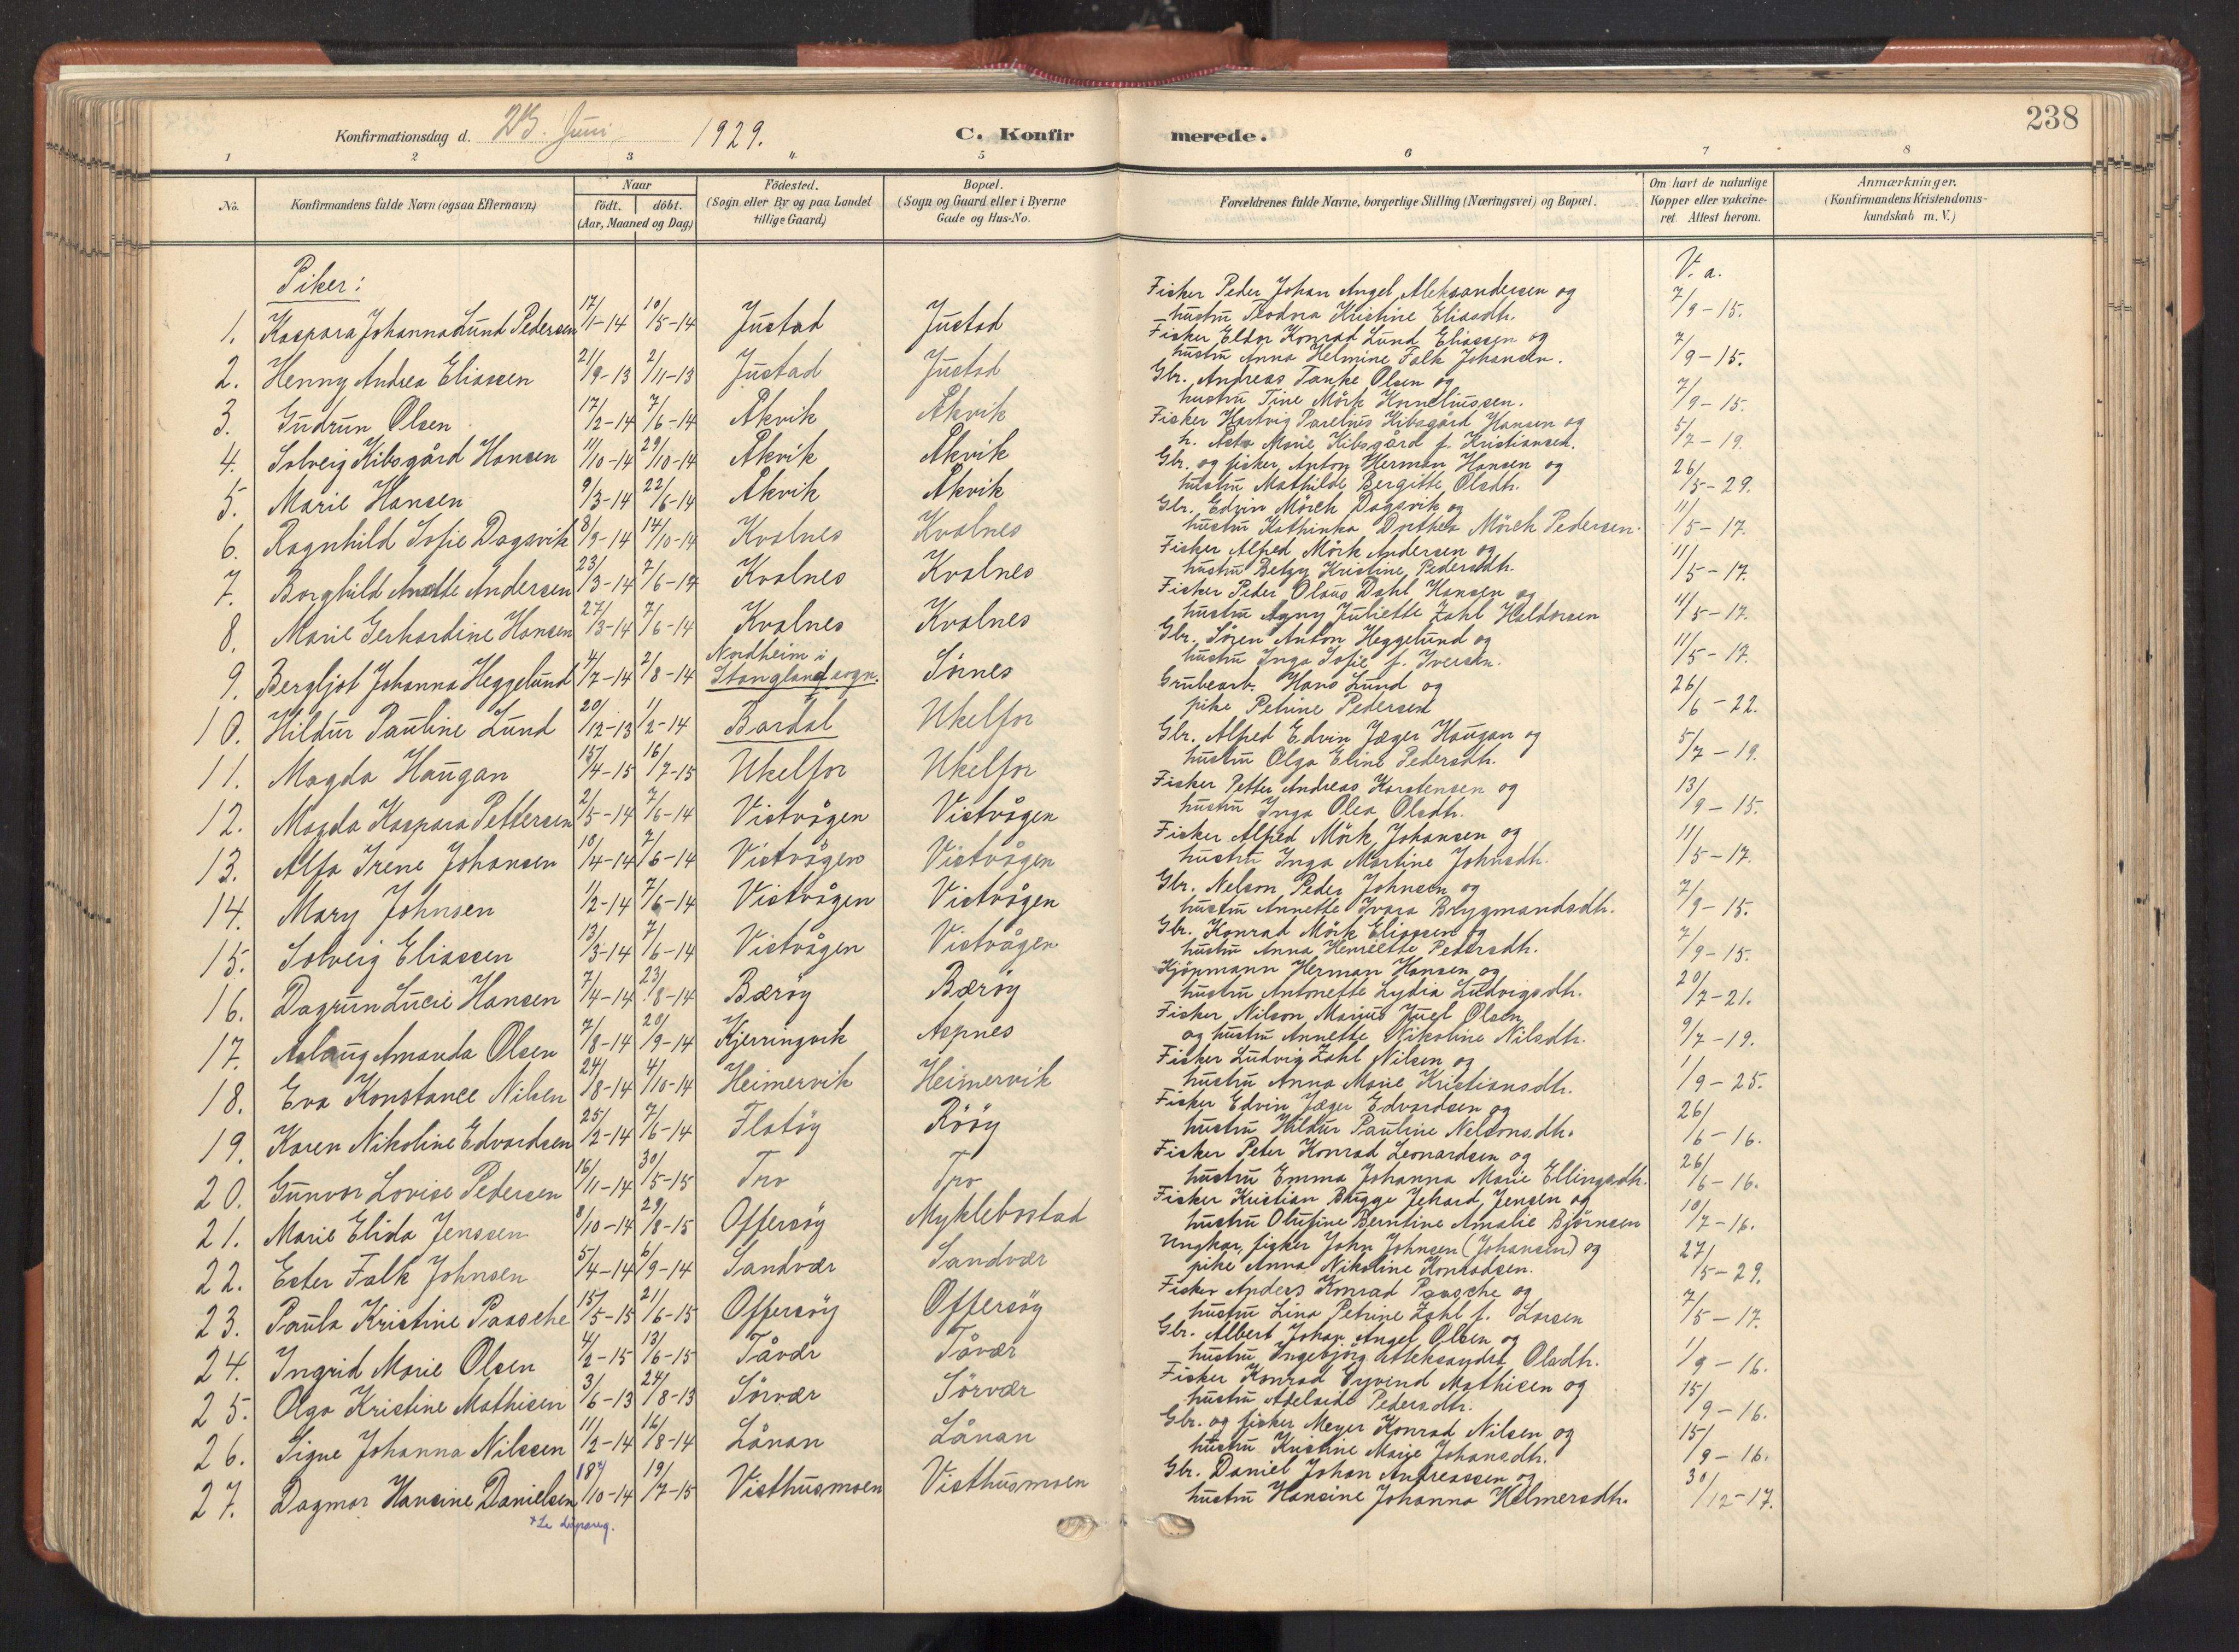 238
Konfirmationsdag d. 23. Juni 1929. C. Konfirmerede.
1 2 3 4. 5 6 7 8
No. Konfirmandens fulde Navn (ogsaa Efternavn) Naar födt. döbt. (Aar, Maaned og Dag) Födested. (Sogn eller By og paa Landet tillige Gaard) Bopæl. (Sogn og Gaard eller i Byerne Gade og Hus-No. Forældrenes fulde Navne, borgerlige Stilling (Næringsvei) og Bopæl. Om havt de naturlige Kopper eller vakcineret. Attest herom. Anmærkninger. (Konfirmandens Kristendomskundskab m. V.)
Piker: V. a.
1. Kaspara Johanna Lund Pedersen 17/1-14 10/5-14 Justad Justad Fisker Peder Johan Angel Aleksandersen og
hustru Kristine Eliasdtr. 7/9-15.
2. Henny Andrea Eliassen 21/9-13 2/11-13 Justad Justad Fisker Eldor Konrad Lund Eliassen og
hustru Anna Helmine Falk Johansen. 7/9-15.
3. Gudrun Olsen 17/2-14 7/6-14 Åkvik Åkvik Gbr. Andreas Tanke Olsen og
hustru Tine Mörk Korneliussen. 7/9-15.
4. Solveig Hibsgård Hansen 11/10-14 29/10-14 Åkvik Åkvik Fisker Hartvig Parelius Hibsgård Hansen og
h. Asta Marie Hibsgård f. Kristiansen. 5/7-19.
5. Marie Hansen 9/3-14 22/6-14 Åkvik Åkvik Gbr. og fisker Anton Herman Hansen og
hustru Mathilde Bergitte Olsdtr. 26/5-29.
6. Ragnhild Sofie Dagsvik 8/9-14 14/10-14 Kvalnes Kvalnes Gbr. Edvin Mörch Dagsvik og
hustru Kathinka Dorthea Mörch Pedersen. 11/5-17.
7. Borghild Anette Andersen 23/3-14 7/6-14 Kvalnes Kvalnes Fisker Alfred Mörk Andersen og
hustru Betzy Kristine Pedersdtr. 11/5-17.
8. Marie Gerhardine Hansen 27/3-14 7/6-14 Kvalnes Kvalnes Fisker Peder Olaus Dahl Hansen og
hustru Agny Juliette Zahl Haldorsen 11/5-17.
9. Bergljot Johanna Heggelund 4/7-14 2/8-14 Nordheim i Stangland sogn. Sörnes Gbr. Sören Anton Heggelund og
hustru Inga Sofie f. Iversen. 11/5-17.
10. Hildur Pauline Lund 20/12-13 1/2-14 Bardal Ukelfor Grubearb. Hans Lund og
pike Petrine Pedersen 26/6-22.
11. Magda Haugan 15/4-15 16/7-15 Ukelfor Ukelfor Gbr. Alfred Edvin Jæger Haugan og
hustru Olga Eline Pedersdtr. 5/7-19.
12. Magda Kaspara Pettersen 2/5-14 7/6-14 Vistvågen Vistvågen Fisker Petter Andreas Karstensen og
hustru Inga Olea Olsdtr. 13/9-15.
13. Alfa Irene Johansen 10/4-14 7/6-14 Vistvågen Vistvågen Fisker Alfred Mörk Johansen og
hustru Inga Martine Johnsdtr. 11/5-17.
14. Mary Johnsen 1/2-14 7/6-14 Vistvågen Vistvågen Gbr. Nelson Peder Johnsen og
hustru Annette Ivara Brygmandsdtr. 7/9-15.
15. Solveig Eliassen 13/3-14 7/6-14 Vistvågen Vistvågen Gbr. Konrad Mörk Eliassen og
hustru Anna Henriette Pedersdtr. 7/9-15.
16. Dagrun Lucie Hansen 7/4-14 23/8-14 Bæröy Bæröy Kjöpmann Herman Hansen og
hustru Antonette Lydia Ludvigsdtr. 20/7-21.
17. Aslaug Amanda Olsen 7/8-14 20/9-14 Kjerringvik Aspnes Fisker Nilson Marius Juel Olsen
og hustru Annette Nikoline Nilsdtr. 9/7-19.
18. Eva Konstance Nilsen 24/8-14 4/10-14 Heimervik Heimervik Fisker Ludvig Zahl Nilsen og
hustru Anna Marie Kristiansdtr. 1/9-25.
19. Karen Nikoline Edvardsen 25/2-14 7/6-14 Flatöy Rööy Fisker Edvin Jæger Edvardsen og
hustru Hildur Pauline Nelsonsdtr. 26/6-16.
20. Gunvor Lovise Pedersen 16/11-14 30/5-15 Tro Tro Fisker Peter Konrad Leonardsen og
hustru Emma Johanna Marie Ellingsdtr. 26/6-16.
21. Marie Elida Jenssen 8/10-14 29/8-15 Offersöy Myklebostad Fisker Kristian Brügge Jehard Jensen og
hustru Olufine Berntine Amalie Björnsen 10/7-16.
22. Ester Falk Johnsen 5/4-14 6/9-14 Sandvær Sandvær Ungkar, fisker John Johnsen (Johansen) og
pike Anna Nikoline Konradsen. 27/5-29.
23. Paula Kristine Paasche 15/5-15 21/6-15 Offersöy Offersöy Fisker Anders Konrad Paasche og
hustru Lina Petrine Zahl f. Larsen 7/5-17.
24. Ingrid Marie Olsen 4/2-15 13/6-15 Tåvær Tåvær Gbr. Albert Johan Angel Olsen og
hustru Ingebjörg Aleksandra Olsdtr. 1/9-16.
25. Olga Kristine Mathisen 3/6-13 24/8-13 Sörvær Sörvær Fisker Konrad Öyvind Mathisen og
hustru Adelaide Pedersdtr. 15/9-16.
26. Signe Johanna Nilssen 11/2-14 16/8-14 Lånan Lånan Gbr. og fisker Meyer Konrad Nilsen og
hustru Kristine Marie Johansdtr. 15/9-16.
27. Dagmar Hansine Danielsen 18/10-14 19/7-15 Visthusmoen Visthusmoen Gbr. Daniel Johan Andreassen og
hustru Hansine Johanna Helmersdtr. 30/12-17.
* Se dåpsreg.